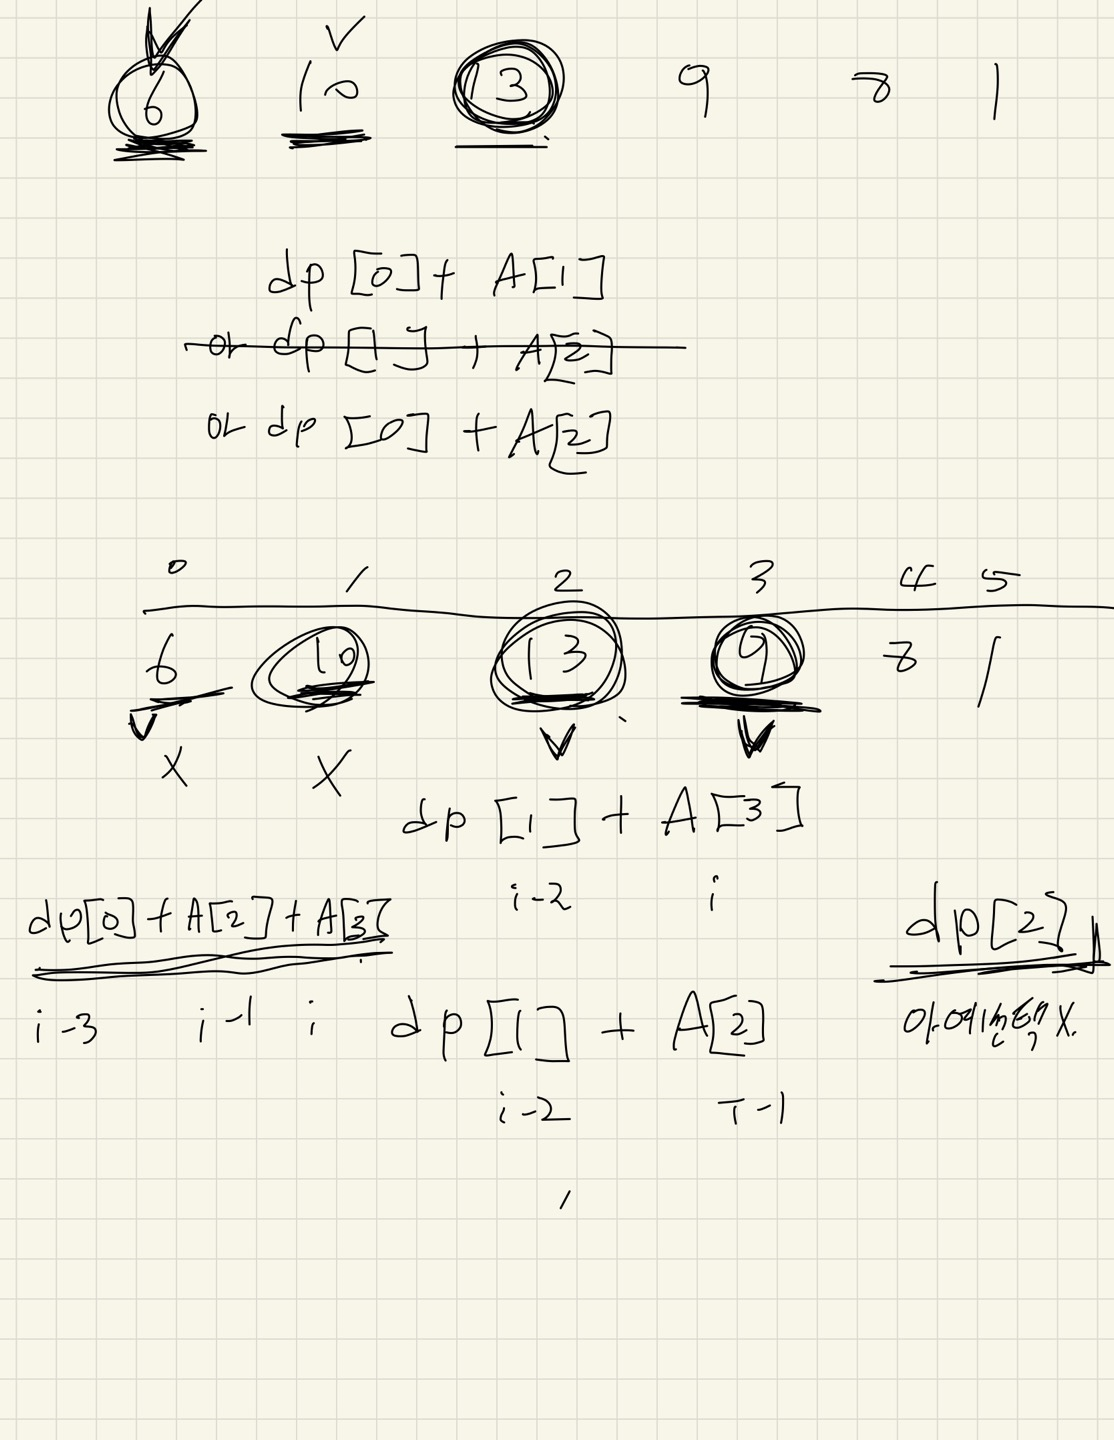 6 10 13 9 8 1
dp [0] + A[1]
or dp [1] + A[2]
or dp [0] + A[2]
0 1 2 3 4 5
6 10 13 9 8 1
X X
dp [1] + A[3]
i-2 i
dp[0] + A[2] + A[3]
dp[2]
i-3 i-1 i
dp [1] + A[2]
X.
i-2 i-1